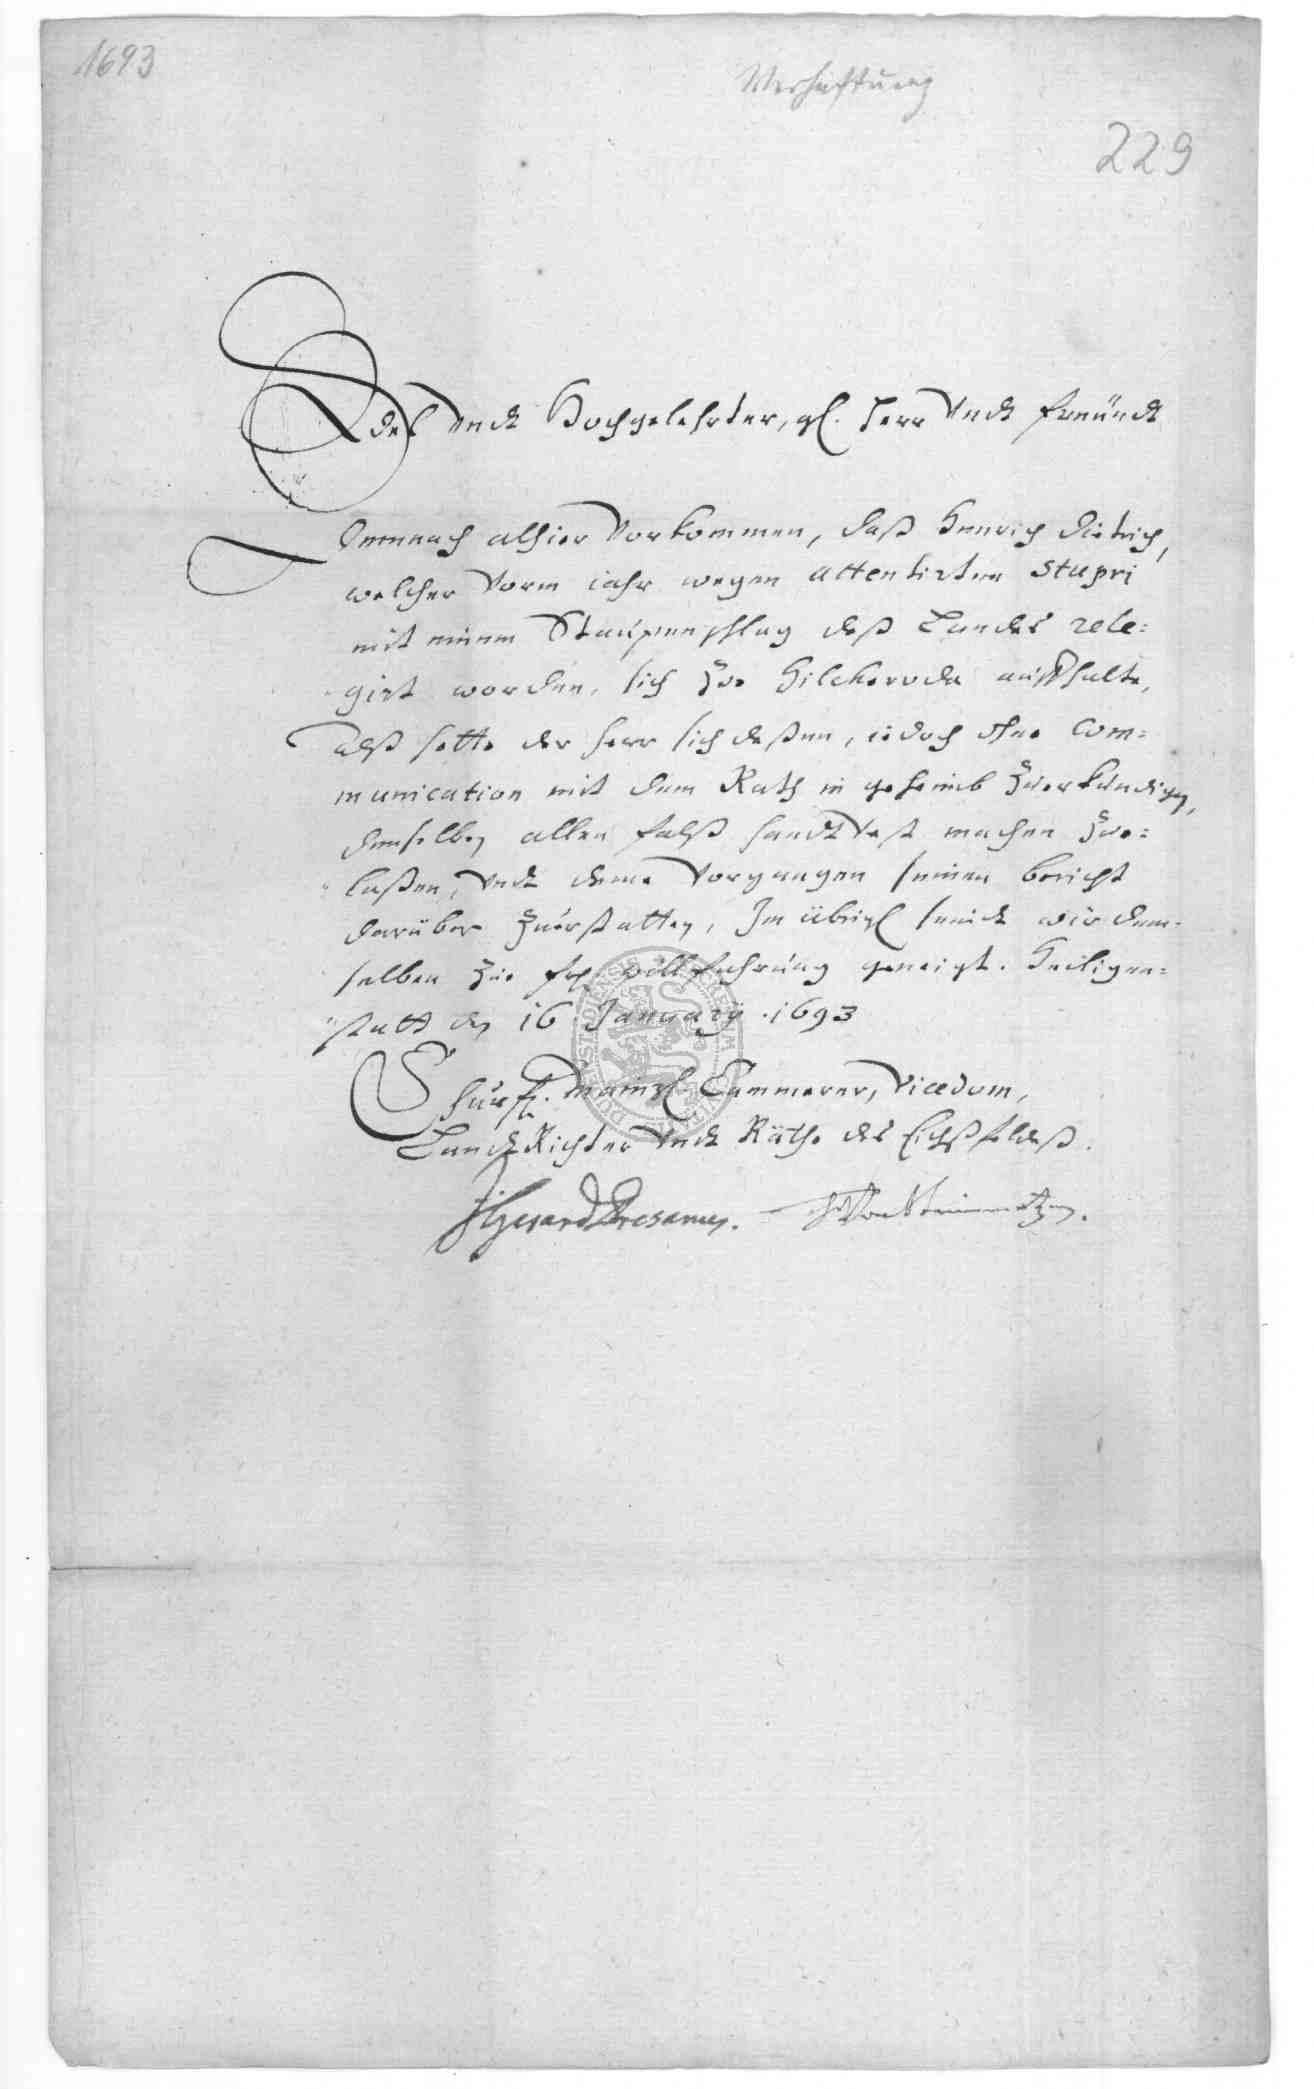 1693
Verhaftung
229
Edel Undt Hochgelehrter, gl. Herr Undt freündt
Demnach alhier Vorkommen, daß Henrich Dietrich,
welcher Vorm iahr wegen attentirten stupri
mit einem Staupenschlag deß Landes rele=
girt worden, sich zue Hilckeroda auffhalte,
Alß hette der Herr sich deßen, iedoch ohne com=
munication mit dem Rath in geheimb zuerkündigen,
denselben allen falß handtVest machen zue=
laßen, Undt deme Vorgangen seinen bericht
darüber zuerstatten, Im übrigen seindt wir dem=
selben zue willfahrung geneigt. Heiligen=
statt den 16 January 1693
Churf. Maintz. Cammerer, Vicedom,
LandtRichter Undt Räthe des Eichßfeldeß.